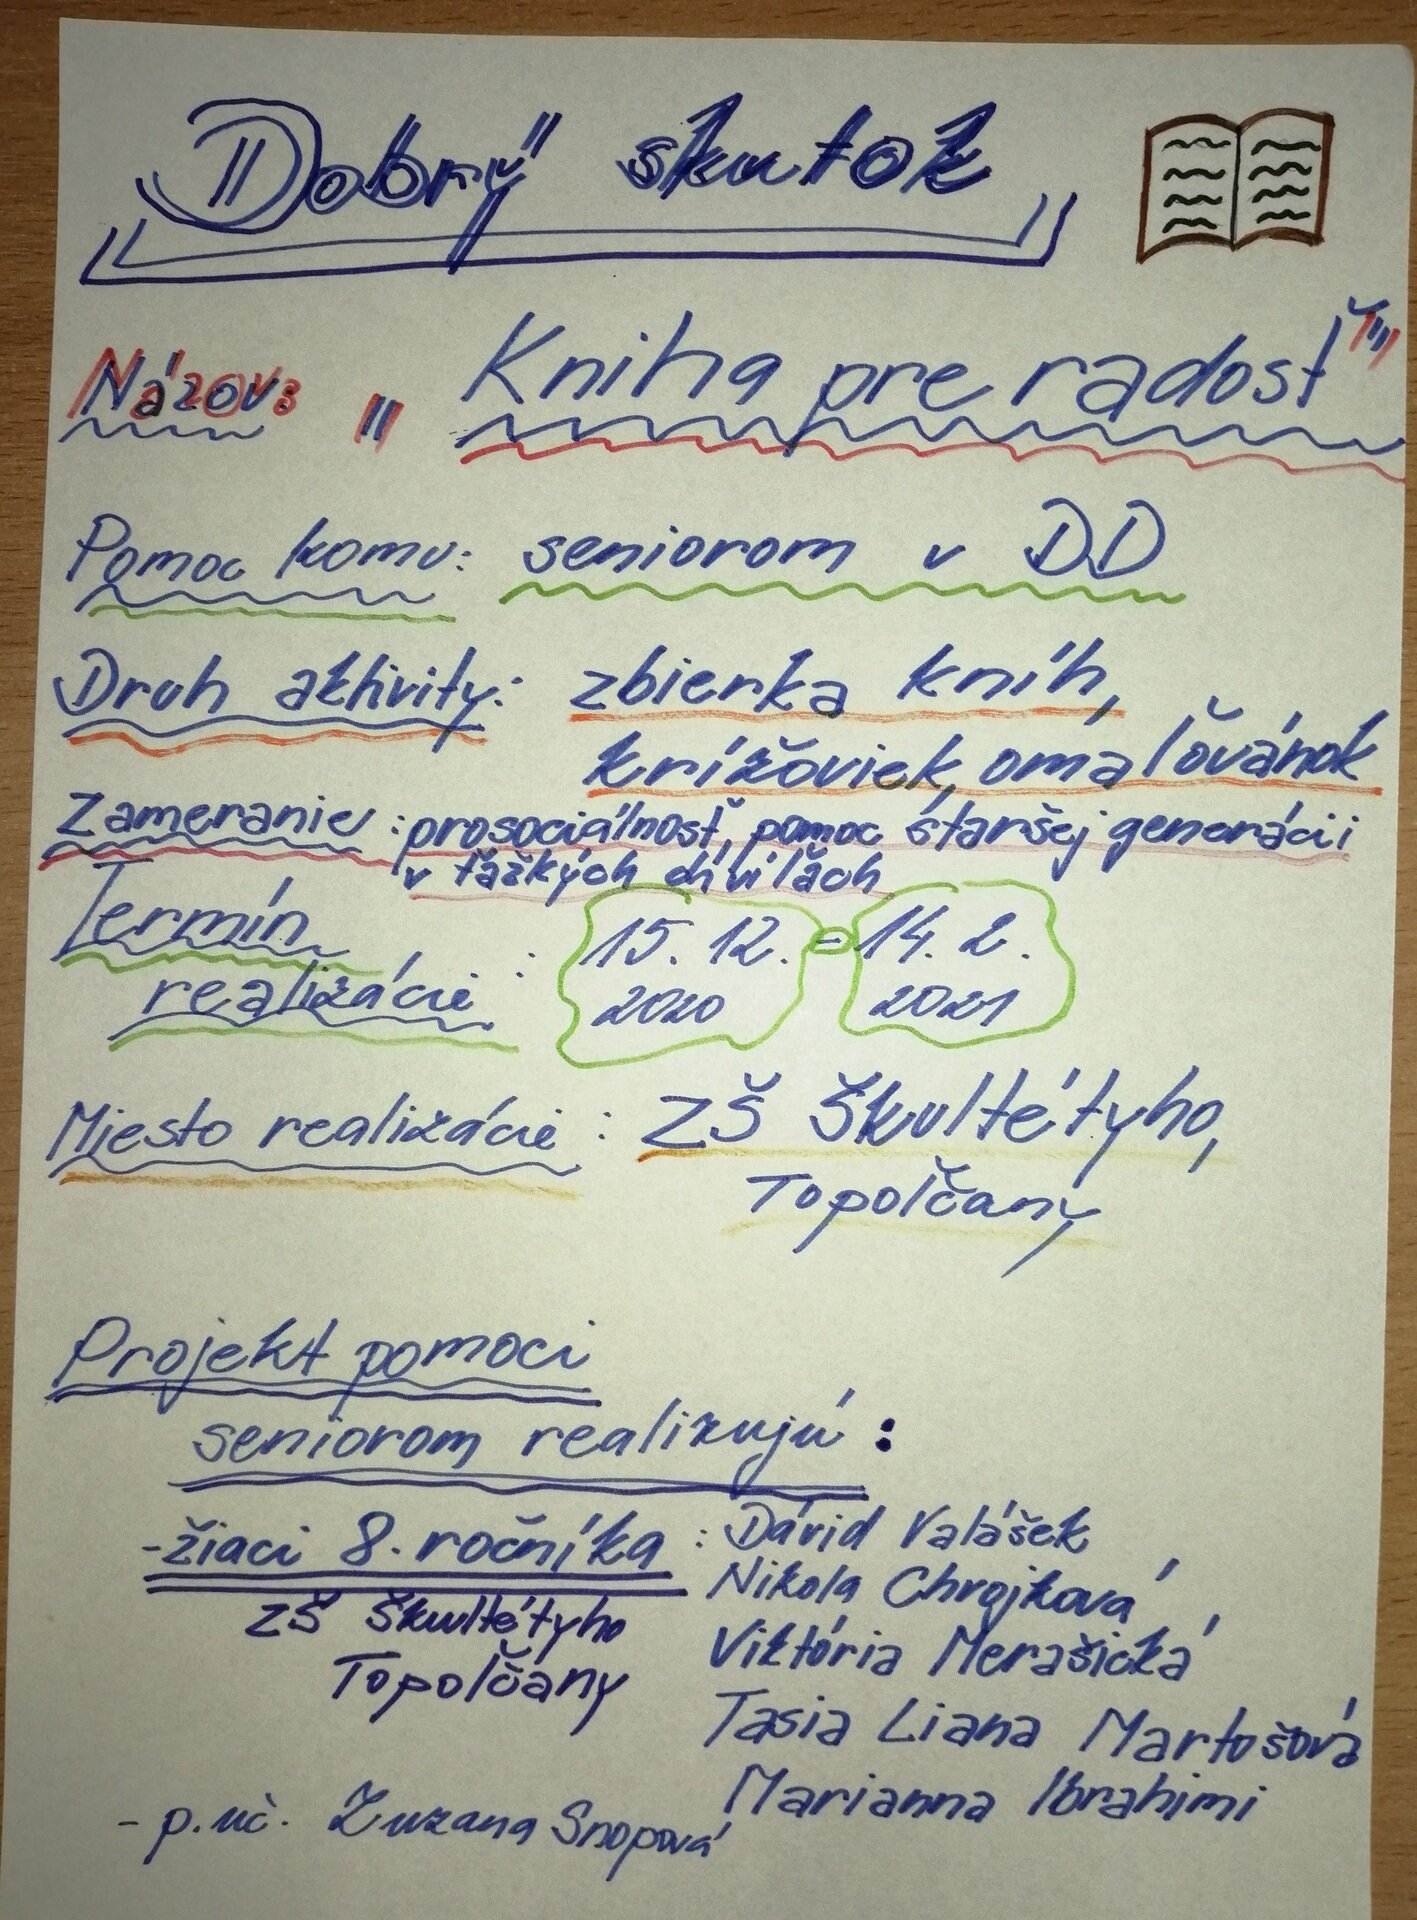 Dobrý skutok
Názov: "Kniha pre radosť"
Pomoc komu: seniorom v DD
Druh aktivity: zbierka kníh,
krížoviek, omaľovánok
Zameranie: prosociálnosť, pomoc staršej generácii
v ťažkých chvíľach
Termín
realizácie : 15. 12. - 14. 2.
2020 2021
Miesto realizácie : ZŠ Škultétyho,
Topoľčany
Projekt pomoci
seniorom realizujú :
- žiaci 8. ročníka : Dávid Valášek
Nikola Chrojková
ZŠ Škultétyho
Viktória Merašická
Topoľčany
Tasia Liana Martošová
Marianna Ibrahimi
- p. uč. Zuzana Snopová